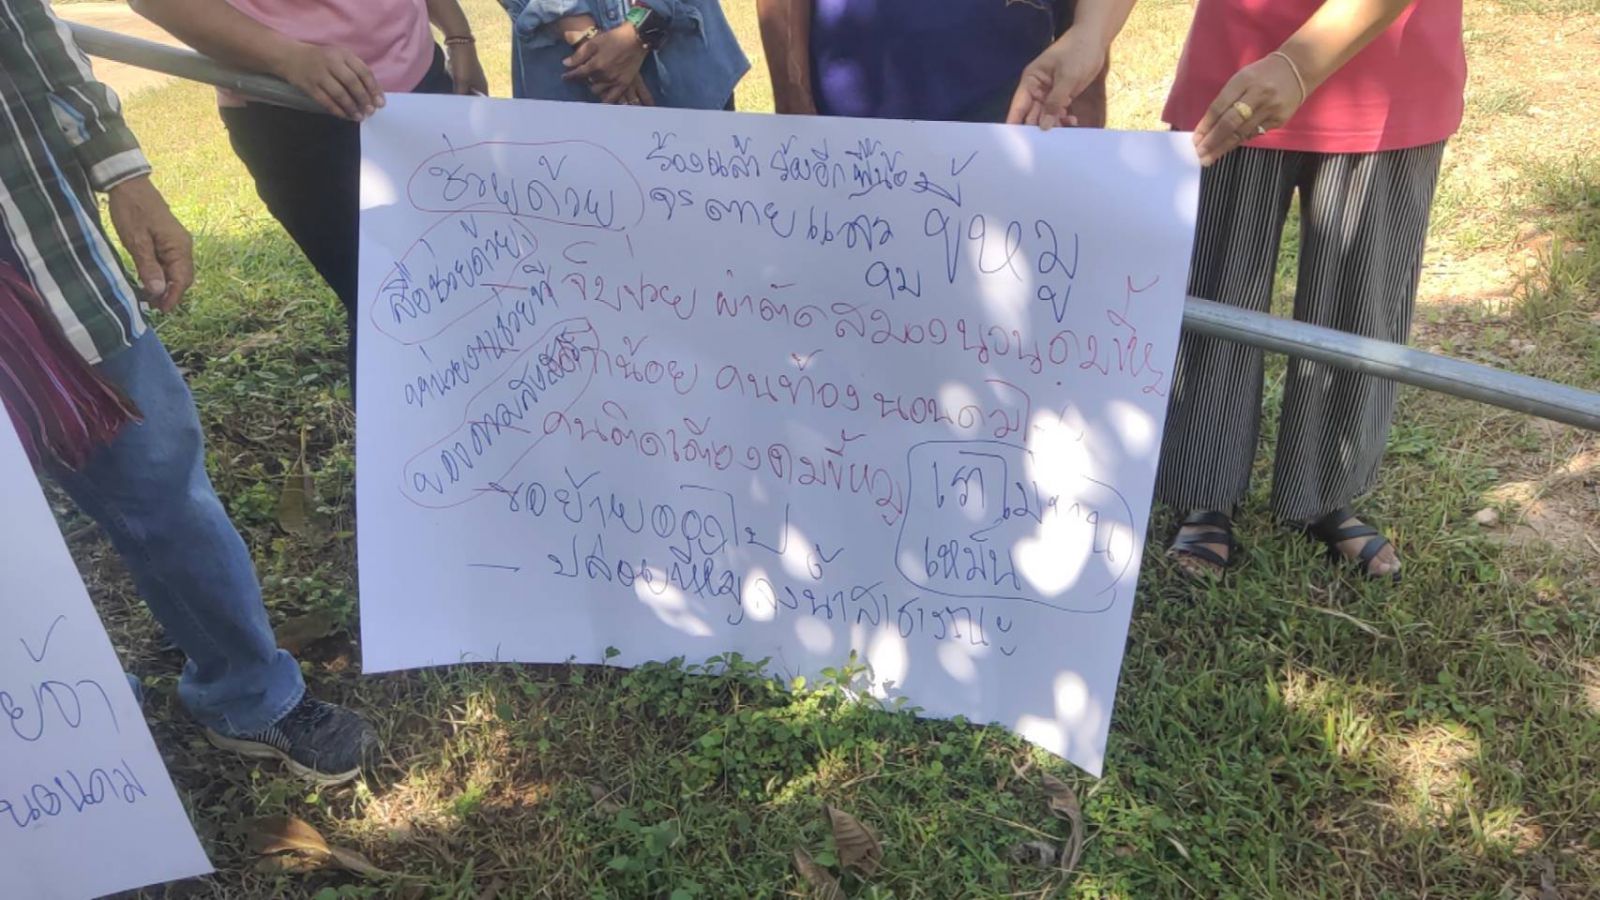 ช่วยด้วย
ร้องแล้ว ร้องอีก พี่น้อง
จะตายแล้ว
ขี้หมู
ดม
สื่อช่วยด้วย
หน่วยงานช่วยที
ป่วย ผ่าตัดสมองนอนดมขี้หมู
น้อย คนท้องนอนดม
คนติดเตียงดมขี้หมู
เราไม่ทาน
เหม็น
ขอย้ายออกไป
— ปล่อยขี้หมูลงน้ำสาธารณะ
นอนดม